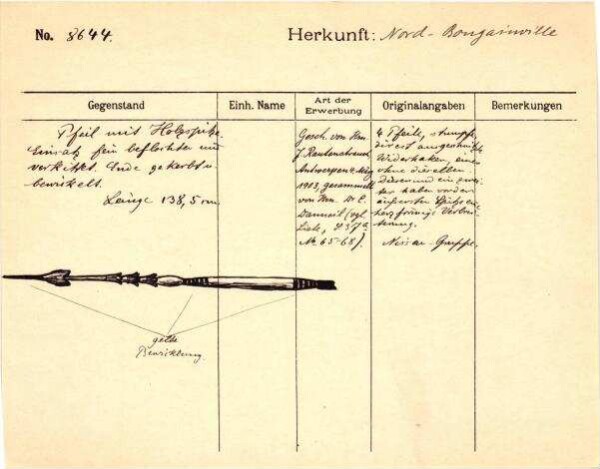 No. 8644.
Herkunft: Nord-Bougainville
Gegenstand
Einh. Name
Art der Erwerbung
Originalangaben
Bemerkungen
Pfeil mit Holzspitze.
Einsatz fein beflochten und
verkittet. Ende gekerbt u.
bewickelt.
Länge 138,5 cm
Gesch. von Hrn.
J. Rautenstrauch
Antwerpen
1913, gesammelt
von Hrn. Dr E.
(vgl.
Liste,
No 65-68).
4 Pfeile, stumpfe,
divers ausgeschnitzte
Widerhaken, einer
ohne dieselben
dieser und ein zwei-
ter haben vor der
äußersten Spitze eine
herzförmige Verdik-
kung.
Nissan-Gruppe.
gelbe
Bewicklung.